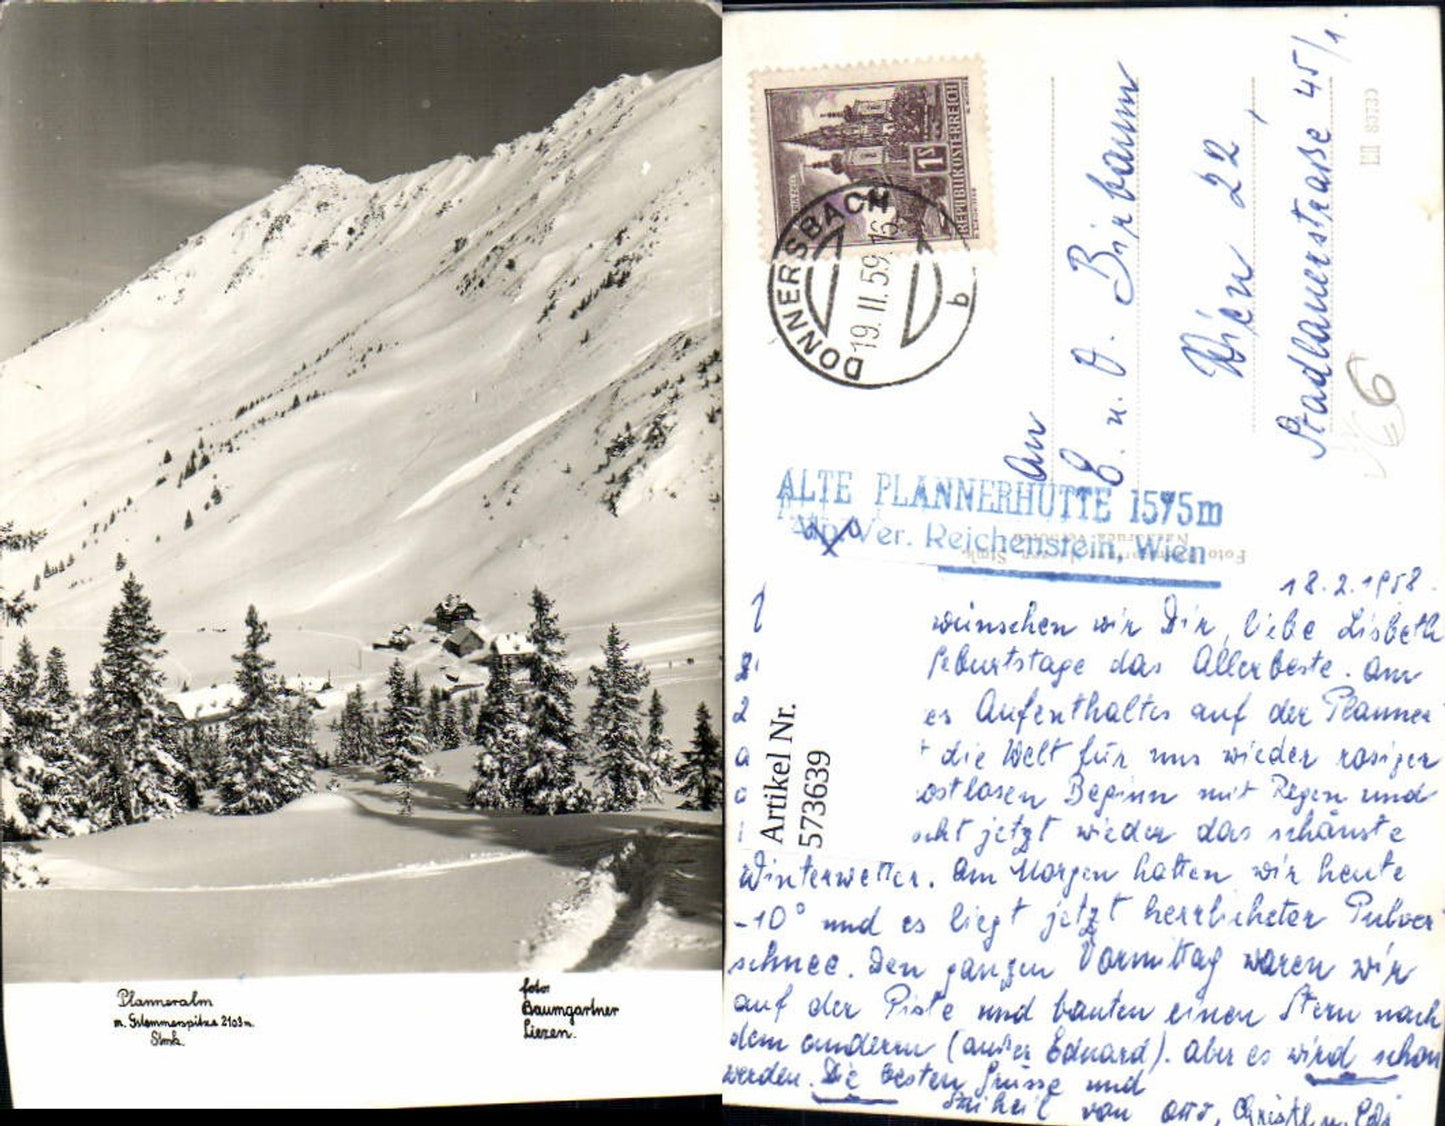 Planneralm
m. Gstemmerspitze 2103 m.
Stmk.
foto:
Baumgartner
Liezen.
REPUBLIK ÖSTERREICH
1S
DONNERSBACH
19. II. 59
b
An
E. u. O. Birbaum
Wien 22,
Stadlauerstraße 45/1
6
ALTE PLANNERHÜTTE 1575m
Alp. Ver. Reichenstein, Wien
18.2.1958.
wünschen wir Dir, liebe Lisbeth
Geburtstage das Allerbeste. Am
es Aufenthaltes auf der Planner
t die Welt für uns wieder rosiger
ostlosen Beginn mit Regen und
scht jetzt wieder das schönste
Winterwetter. Am Morgen hatten wir heute
-10° und es liegt jetzt herrlichster Pulver
schnee. Den ganzen Vormittag waren wir
auf der Piste und bauten einen Stern nach
dem anderen (außer Eduard). Aber es wird schon
werden. Die besten Grüsse und
Schiheil von Otto, Christl u. Edi
Artikel Nr.
573639